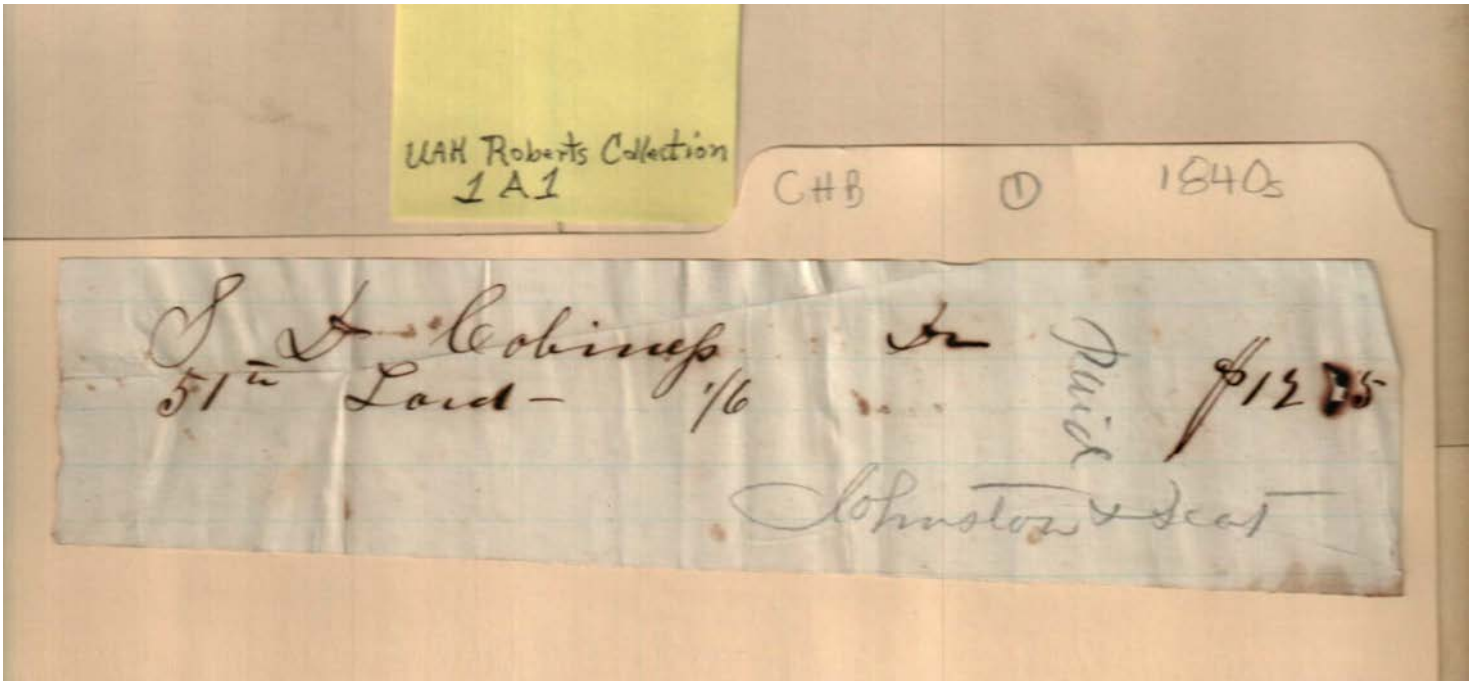 UAH Roberts Collection
1 A 1
CHB ① 1840s
S D Cabiness Dr
51 lb Lard - 1/6 $12
Paid
Johnston &